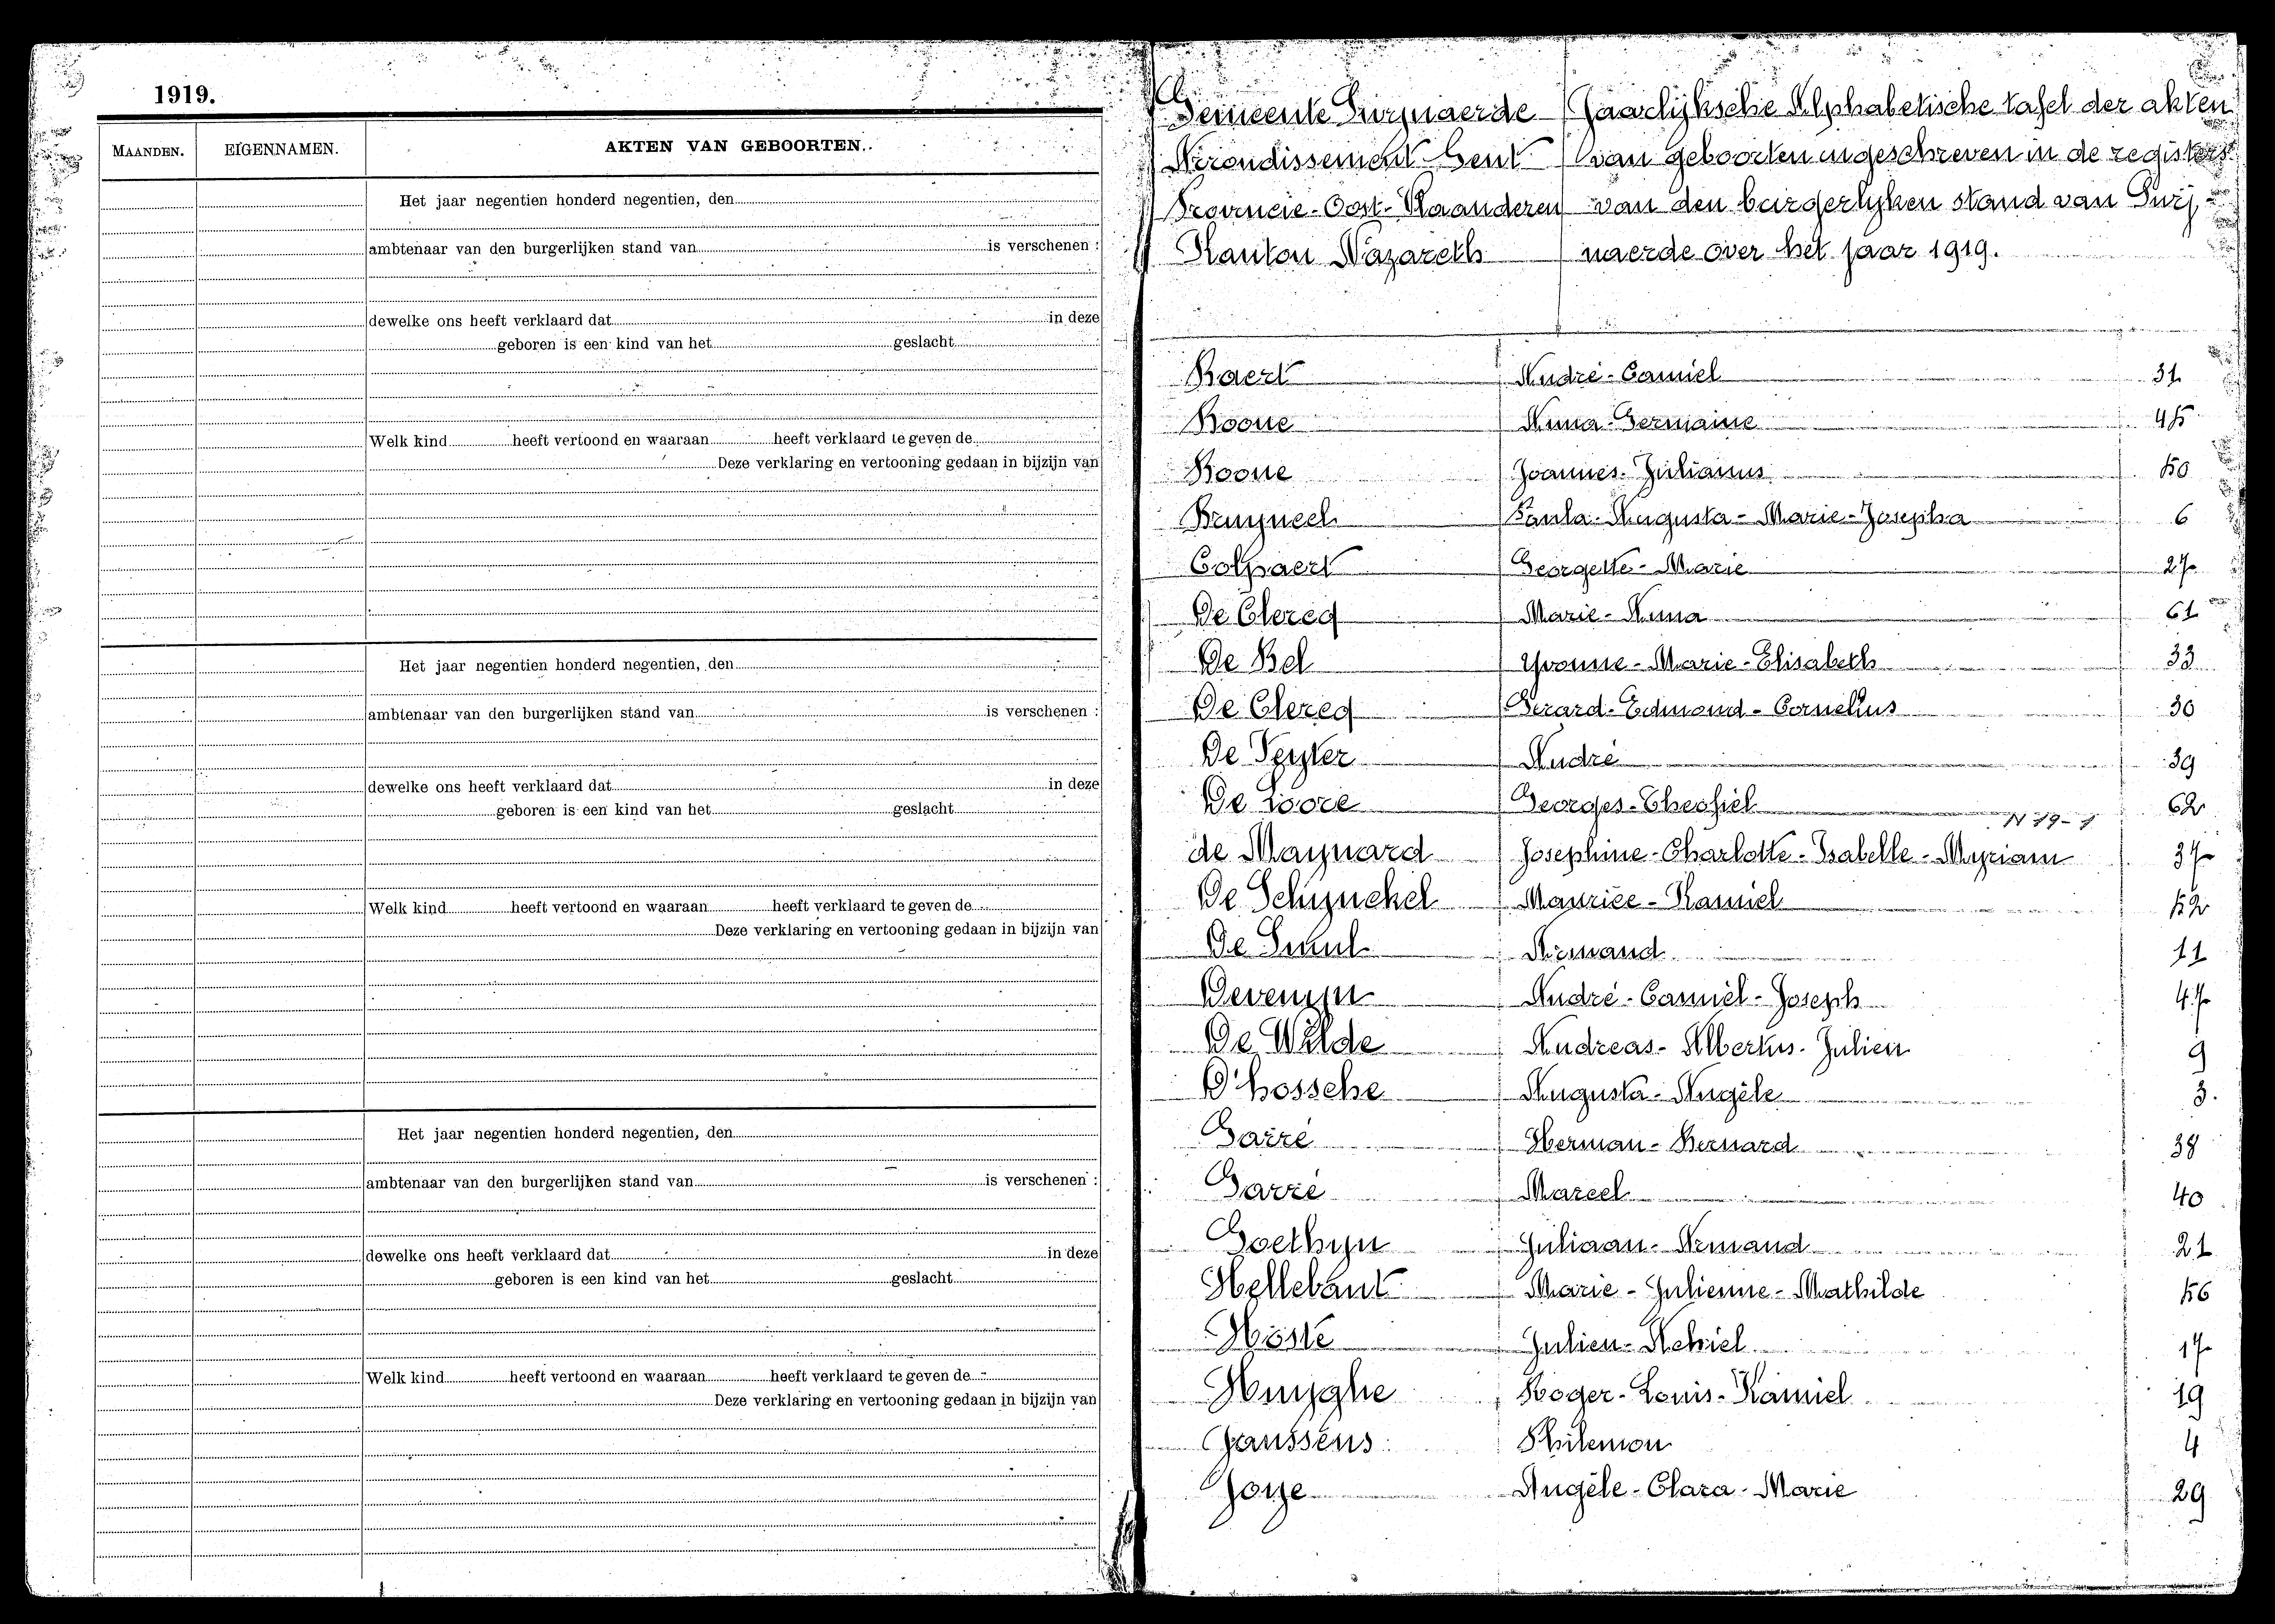 1919.
MAANDEN. EIGENNAMEN. AKTEN VAN GEBOORTEN.
Het jaar negentien honderd negentien, den
ambtenaar van den burgerlijken stand van is verschenen :
dewelke ons heeft verklaard dat in deze
geboren is een kind van het geslacht
Welk kind heeft vertoond en waaraan heeft verklaard te geven de
Deze verklaring en vertooning gedaan in bijzijn van
Het jaar negentien honderd negentien, den
ambtenaar van den burgerlijken stand van is verschenen :
dewelke ons heeft verklaard dat in deze
geboren is een kind van het geslacht
Welk kind heeft vertoond en waaraan heeft verklaard te geven de
Deze verklaring en vertooning gedaan in bijzijn van
Het jaar negentien honderd negentien, den
ambtenaar van den burgerlijken stand van is verschenen :
dewelke ons heeft verklaard dat in deze
geboren is een kind van het geslacht
Welk kind heeft vertoond en waaraan heeft verklaard te geven de
Deze verklaring en vertooning gedaan in bijzijn van
Gemeente Swijnaerde Jaarlijksche Alphabetische tafel der akten
Arrondissement Gent van geboorten ingeschreven in de registers
Provincie-Oost-Vlaanderen van den burgerlijken stand van Swij-
Kanton Nazareth naerde over het jaar 1919.
Baert André-Camiel 31
Boone Anna-Germaine 45
Boone Joannes-Julianus 50
Bruyneel Paula-Augusta-Marie-Josepha 6
Colpaert Georgette-Marie 27
De Clercq Marie-Anna 61
De Bel Yvonne-Marie-Elisabeth 33
De Clercq Gerard-Edmond-Cornelius 30
De Peyter André 39
De Loore Georges-Theofiel 62
de Maynard Josephine-Charlotte-Isabelle-Myriam 37
De Schynckel Maurice-Kamiel 52
De Smul Armand 11
Devenyn André-Camiel-Joseph 47
De Wilde Andreas-Albertus-Julien 9
D'hossche Augusta-Angèle 3.
Garré Herman-Bernard 38
Garré Marcel 40
Goethyn Juliaan-Armand 21
Hellebaut Marie-Julienne-Mathilde 56
Hoste Julien-Achiel 17
Huyghe Roger-Louis-Kamiel 19
Janssens Philemon 4
Joye Angèle-Clara-Marie 29